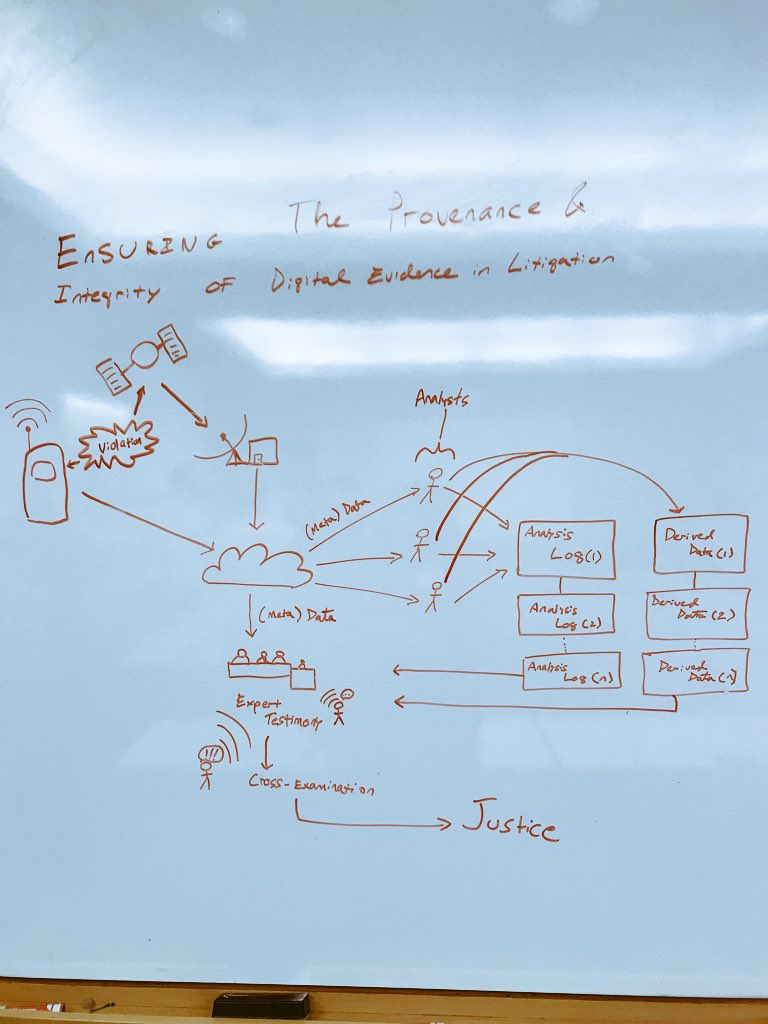 ENSURING The Provenance &
Integrity OF Digital Evidence in Litigation
Violation
Analysts
(Meta) Data
Analysis
Log(1)
Derived
Data(1)
Analysis
Log(2)
Derived
Data(2)
Analysis
Log(n)
Derived
Data(n)
(Meta) Data
Expert
Testimony
!!!
Cross-Examination
Justice